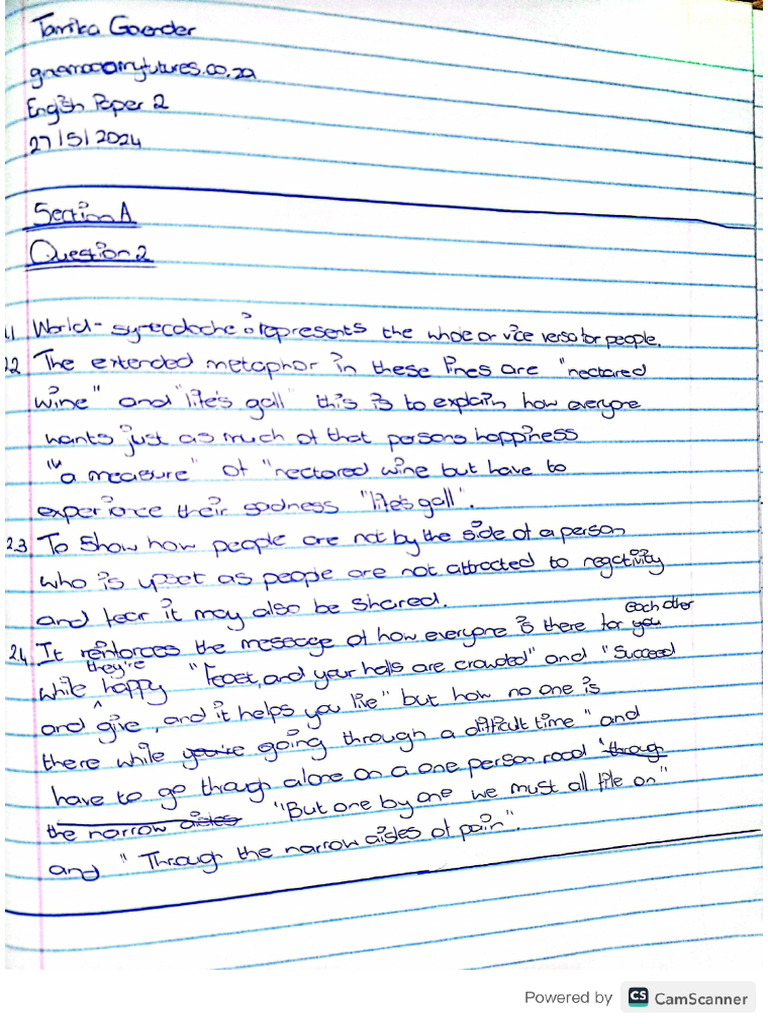 Tamika Goerder
English Paper 2
27/5/2024
Section A
Question 2
World - synecdoche represents the whole or vice versa for people.
2.2 The extended metaphor in these lines are "nectared
wine" and "life's gall" this is to explain how everyone
wants just as much of that persons happiness
"a measure" of "nectared wine but have to
experience their sadness "life's gall".
2.3 To Show how people are not by the side of a person
who is upset as people are not attracted to negativity
and fear it may also be shared.
2.4 It reinforces the message of how everyone is there for you each other
while they're happy "Feast, and your halls are crowded" and "Succeed
and give, and it helps you live" but how no one is
there while you're going through a difficult time " and
have to go though alone on a one person road "through
the narrow aisles "But one by one we must all file on"
and "Through the narrow aisles of pain".
Powered by CS CamScanner